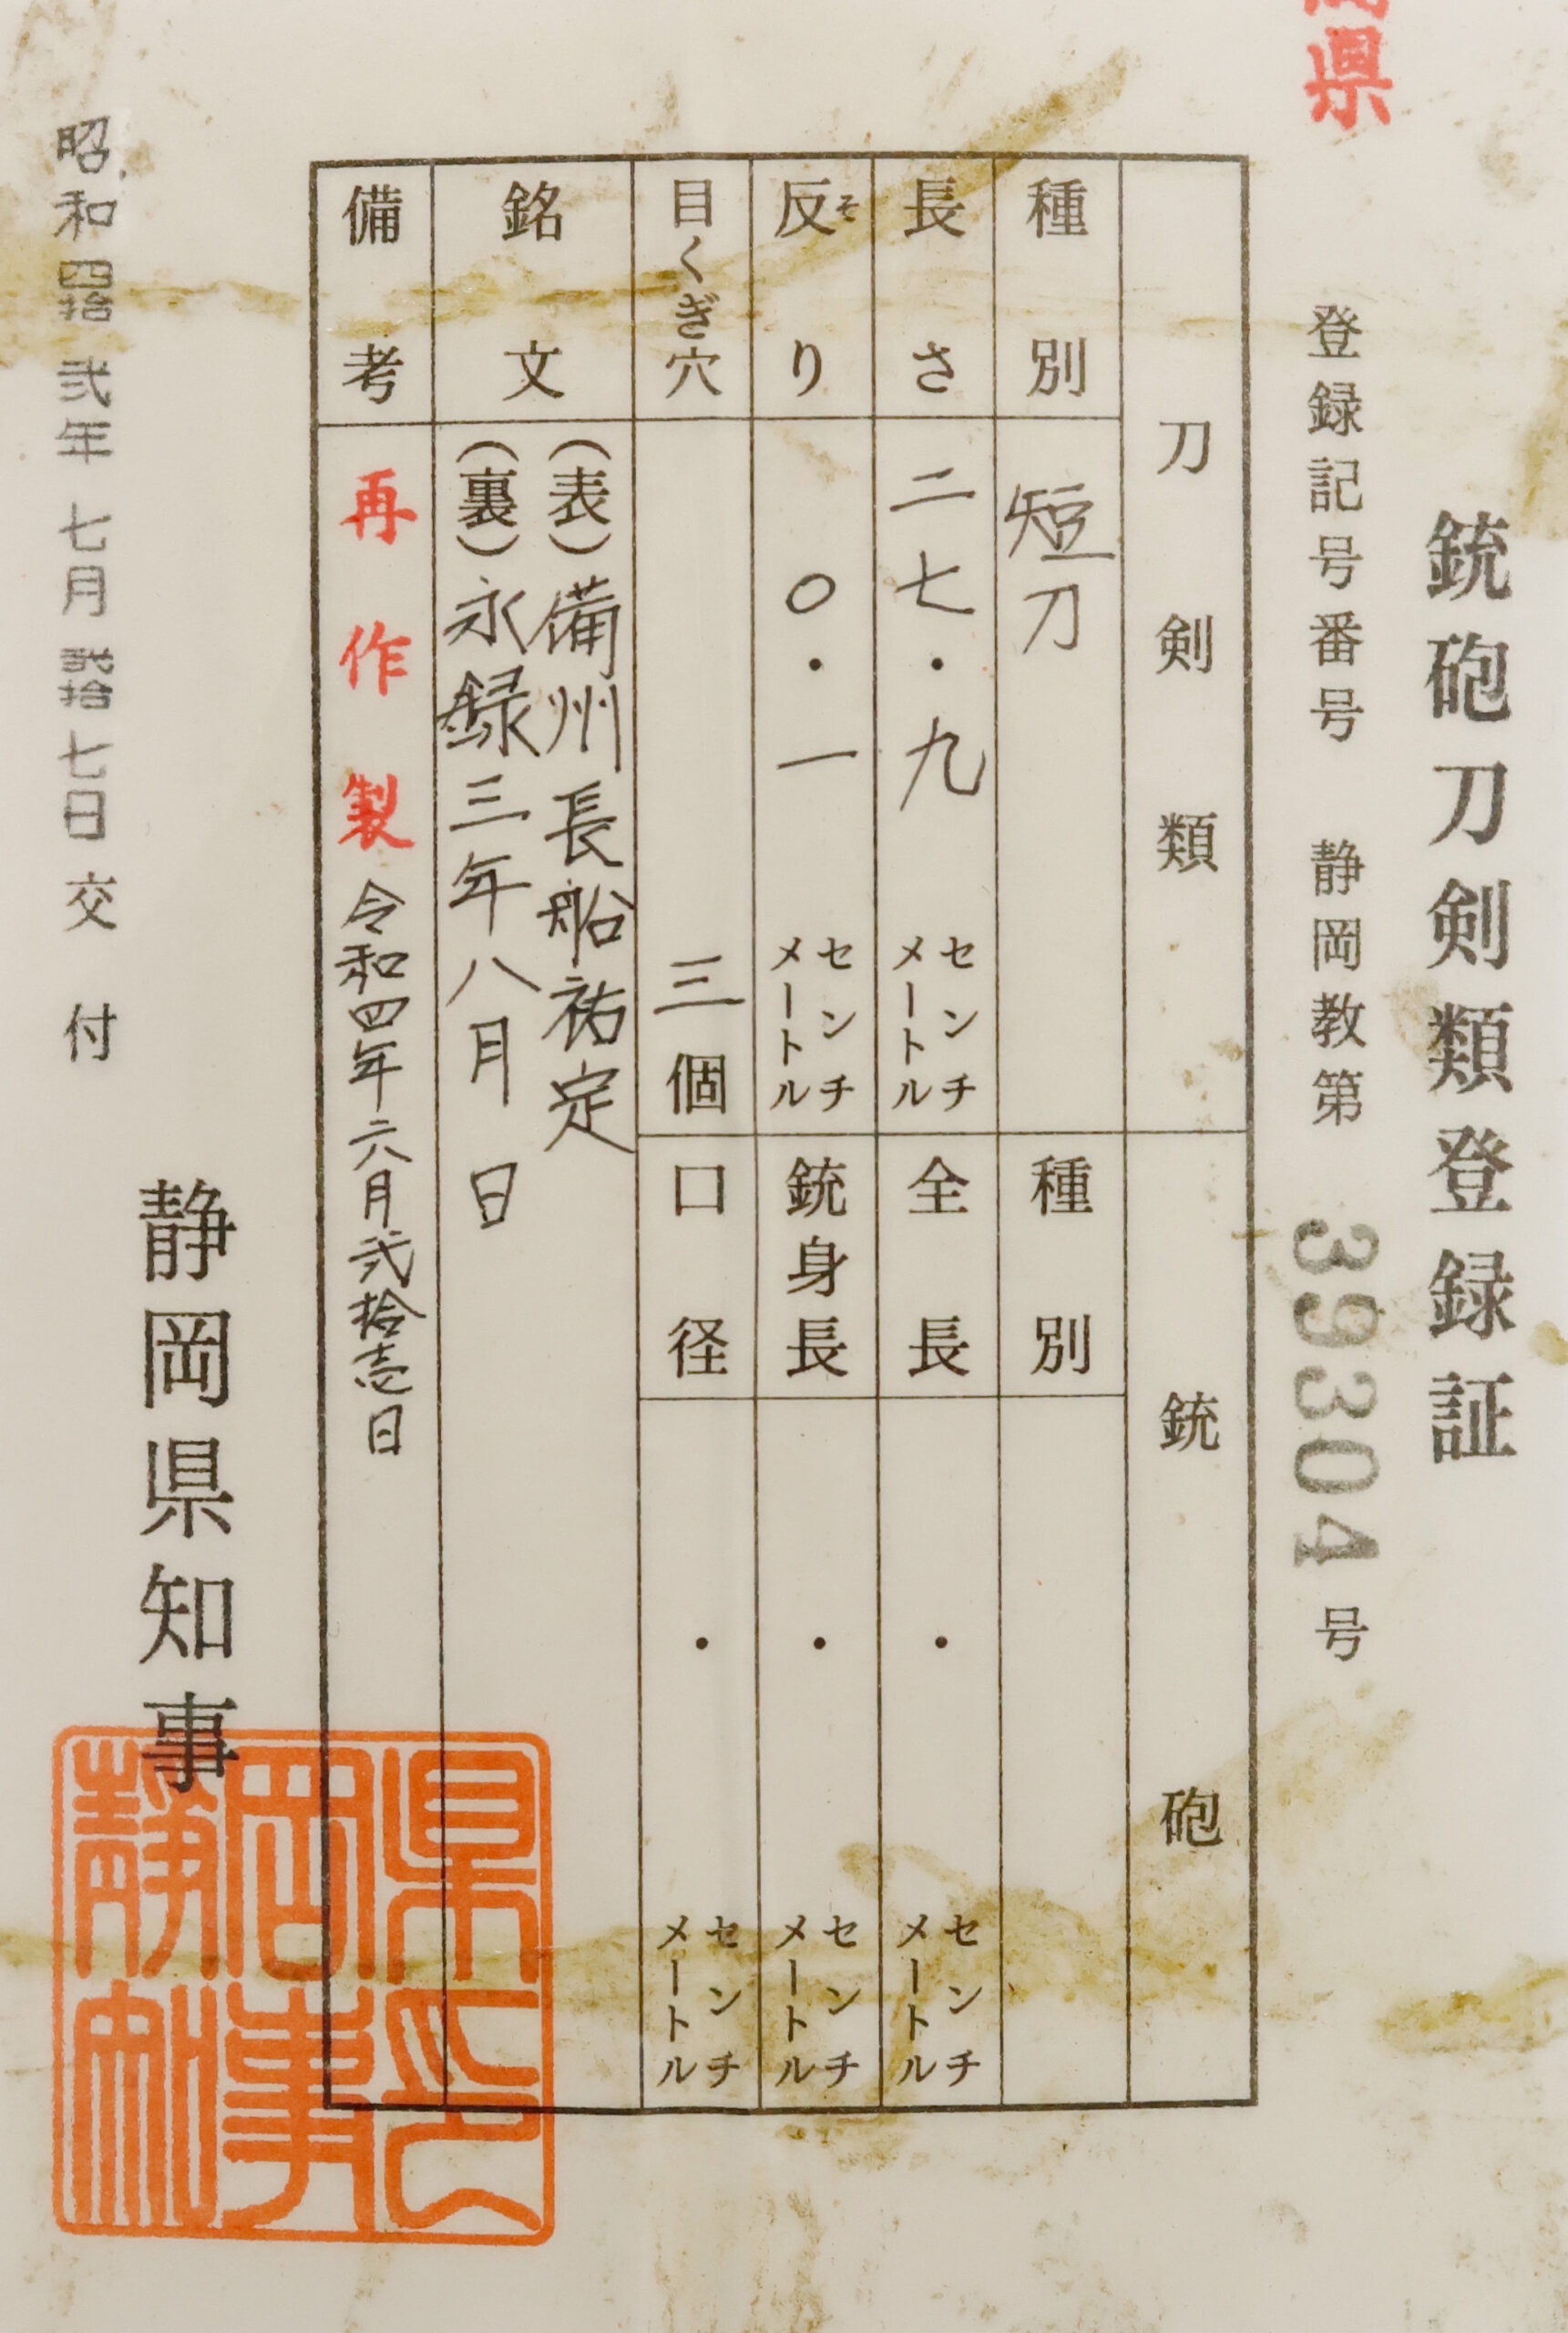 県
銃砲刀剣類登録証
登録記号番号 静岡教第 39304 号
刀剣類
種別 短刀
長さ 二七・九 センチメートル
反り 〇・一 センチメートル
そ
目くぎ穴 三個
銘文 (表)備州長船祐定
(裏)永録三年八月 日
備考 再作製 令和四年六月弐拾壱日
銃砲
種別
全長 ・ センチメートル
銃身長 ・ センチメートル
口径 ・ センチメートル
静岡県知事
昭和四拾弐年七月弐拾七日交付
静岡県知事